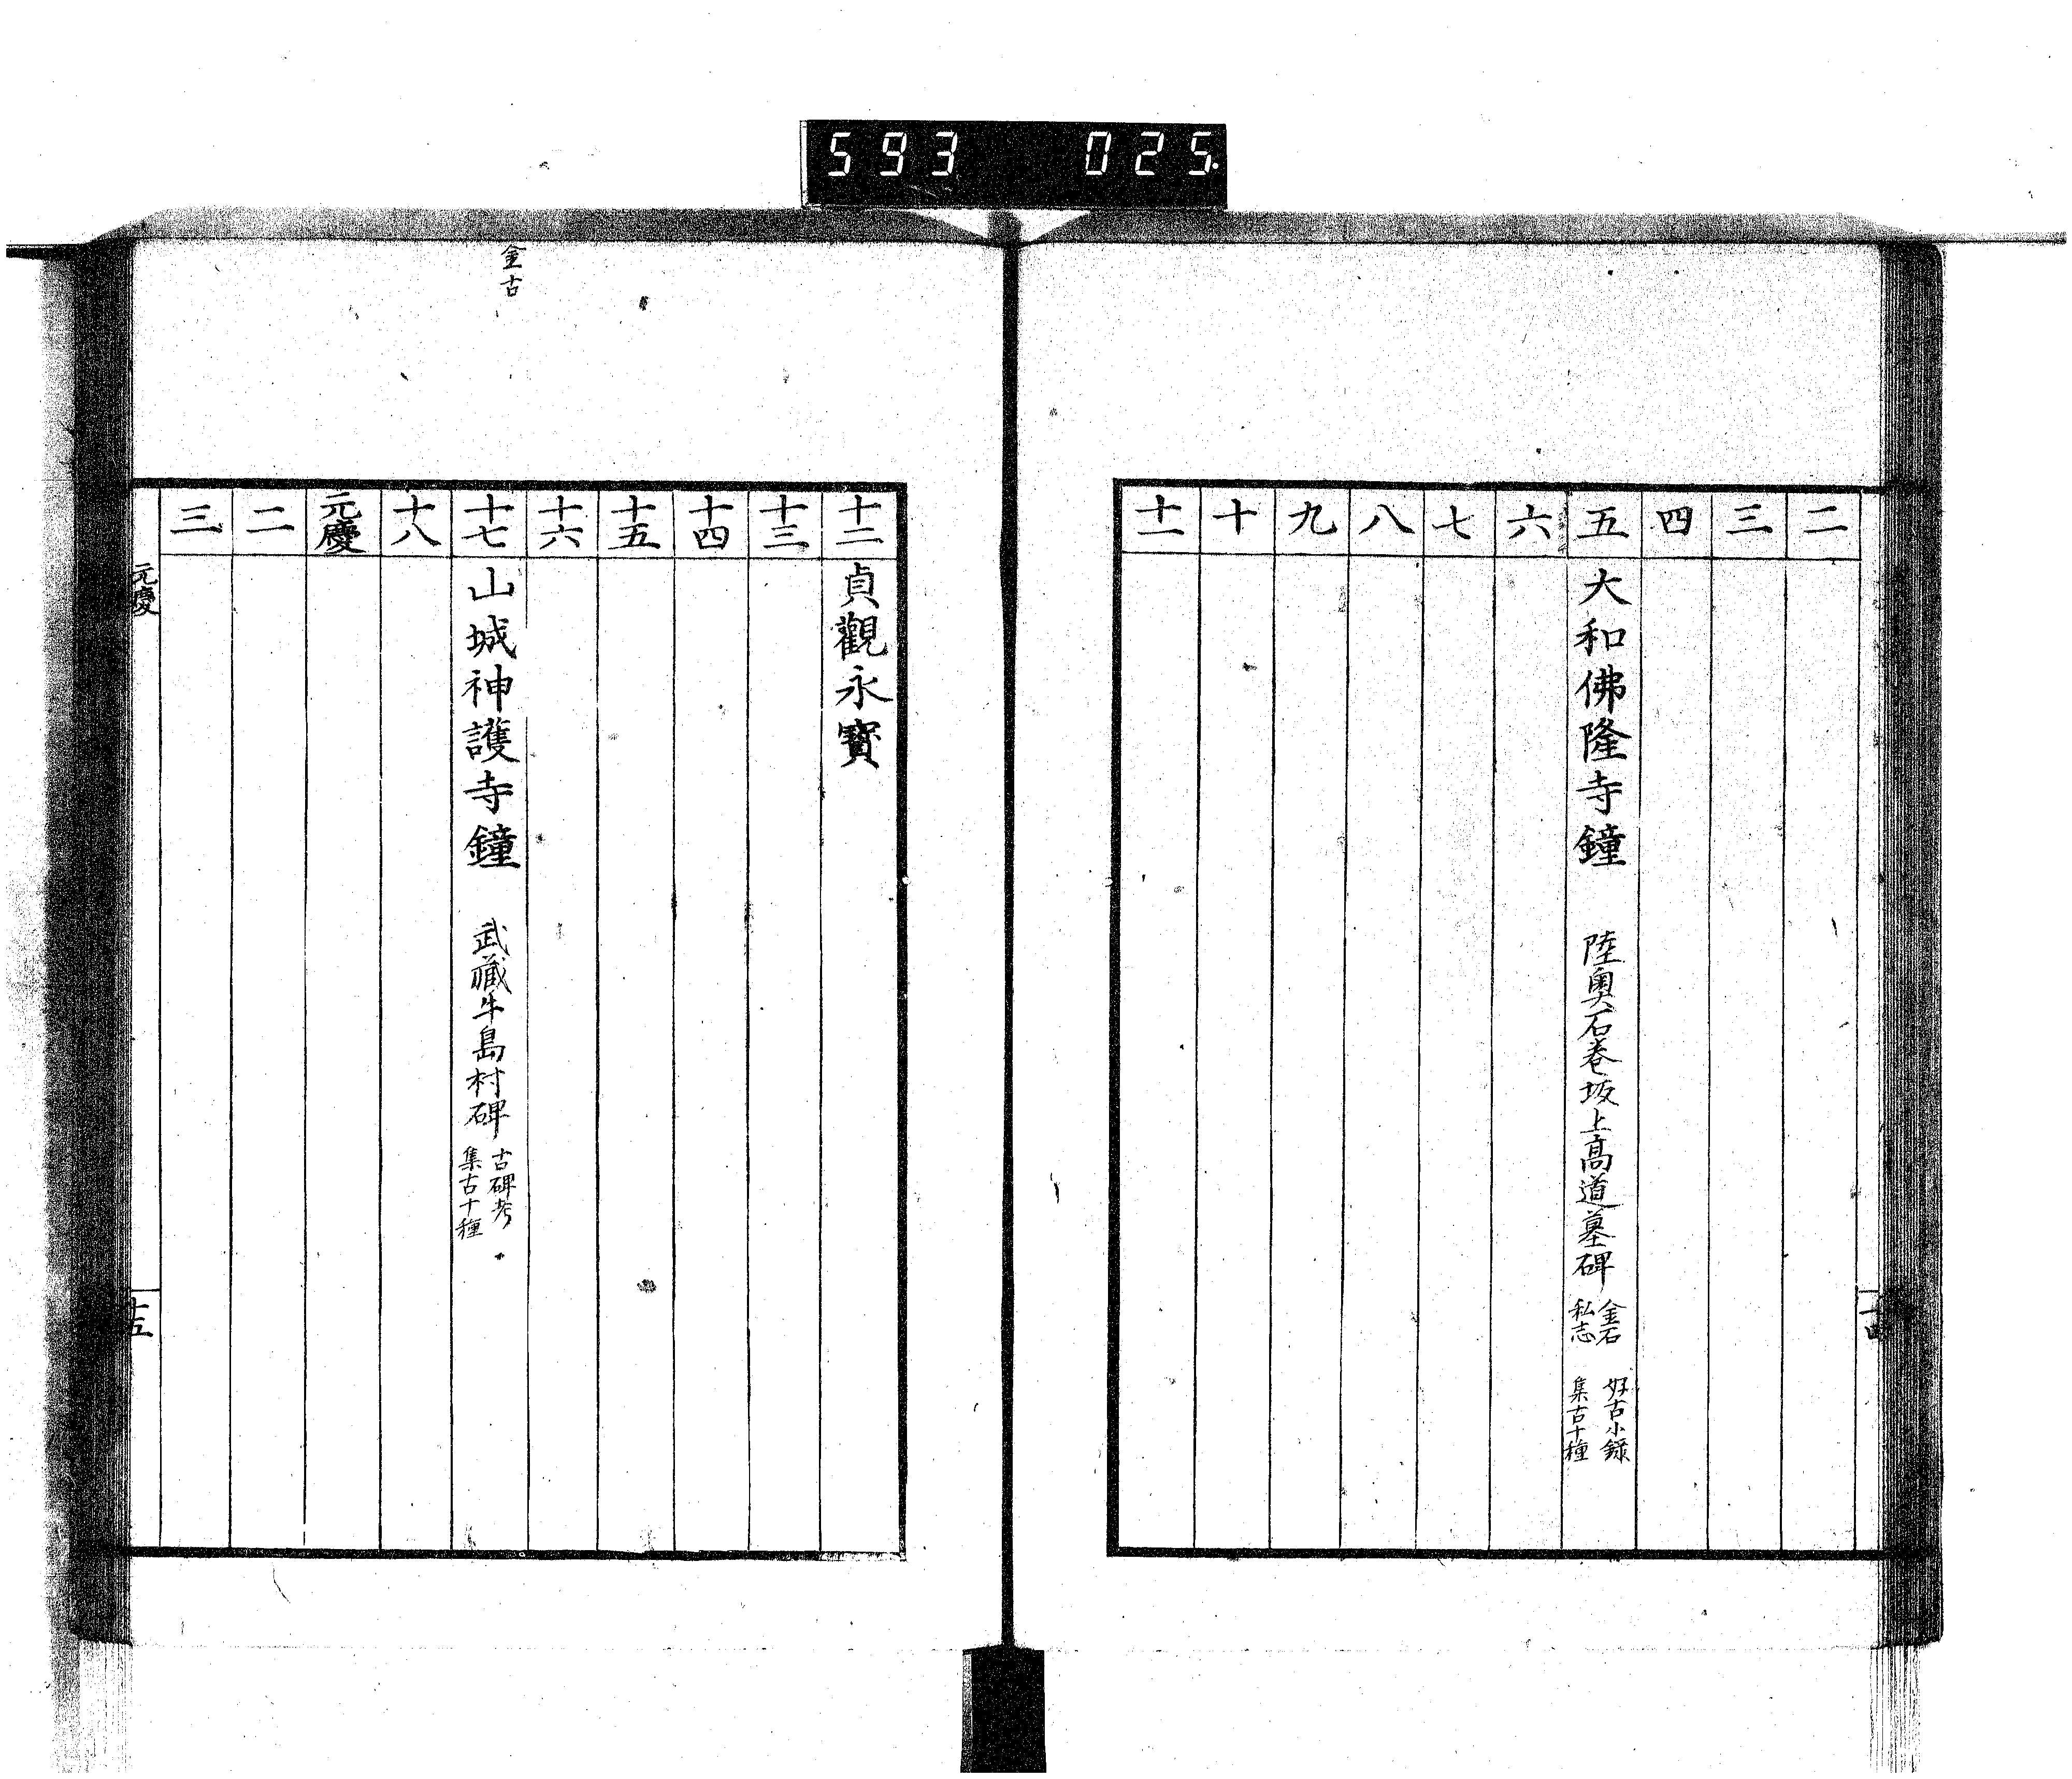 593 025
二
三
四
五
大和佛隆寺鐘 陸奥石巻坂上高道墓碑
金石
私志
好古小録
集古十種
六
七
八
九
十
十一
十四
十二
貞觀永寶
十三
十四
十五
十六
金古
十七
山城神護寺鐘 武藏牛島村碑
古碑考
集古十種
十八
元慶
二
三
元慶
十五